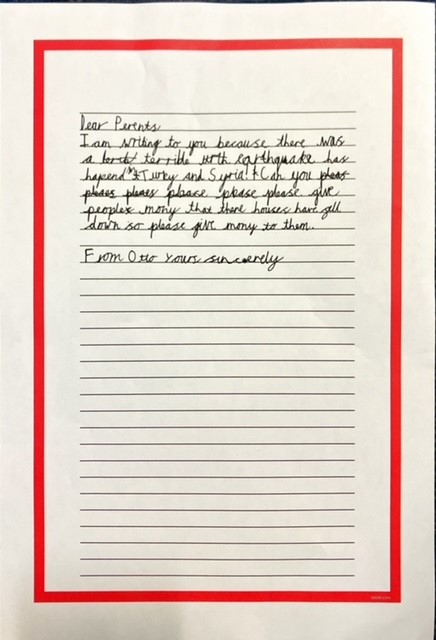 Dear Perents
I am writing to you because there was
a terrible earthquake has
hapend in Turkey and Syria. Can you
please please please give
peoples mony that there houses have fell
down so please give mony to them.
From Otto Yours sincerely